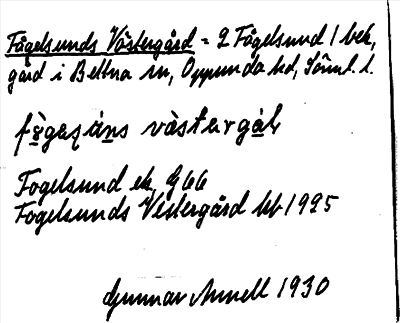 Fågelsunds Västergård = 2 Fågelsund 1 bek,
gård i Bettna sn, Oppunda hd, Söml. l.
västərgå
Fogelsund ek, G 66
Fogelsunds Vestergård kb 1925
Gunnar Annell 1930